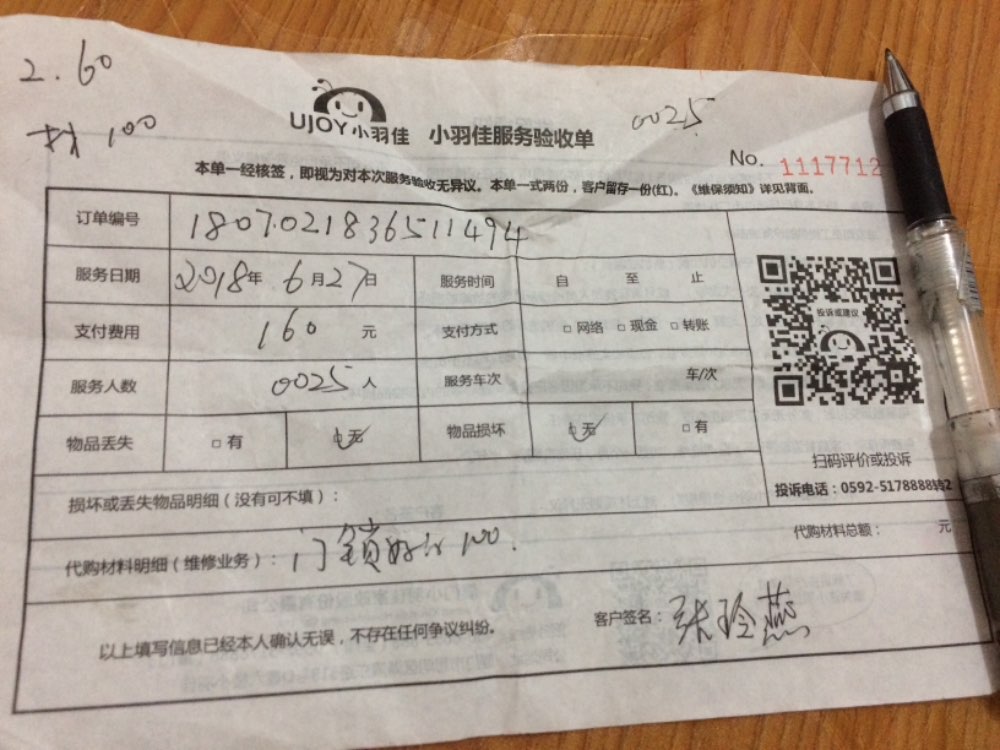 2.60
材100
UJOY小羽佳 小羽佳服务验收单
0025
No. 1117712
本单一经核签，即视为对本次服务验收无异议。本单一式两份，客户留存一份(红)。《维保须知》详见背面。
订单编号 180702183651 1494
服务日期 2018年 6月27日 服务时间 自 至 止
支付费用 160 元 支付方式 □网络 □现金 □转账
投诉或建议
服务人数 0025人 服务车次 车/次
物品丢失 □有 ☑无 物品损坏 ☑无 □有
扫码评价或投诉
投诉电话：0592-5178888
损坏或丢失物品明细（没有可不填）：
代购材料明细（维修业务）： 门锁 100. 代购材料总额： 元
以上填写信息已经本人确认无误，不存在任何争议纠纷。 客户签名： 张玲燕